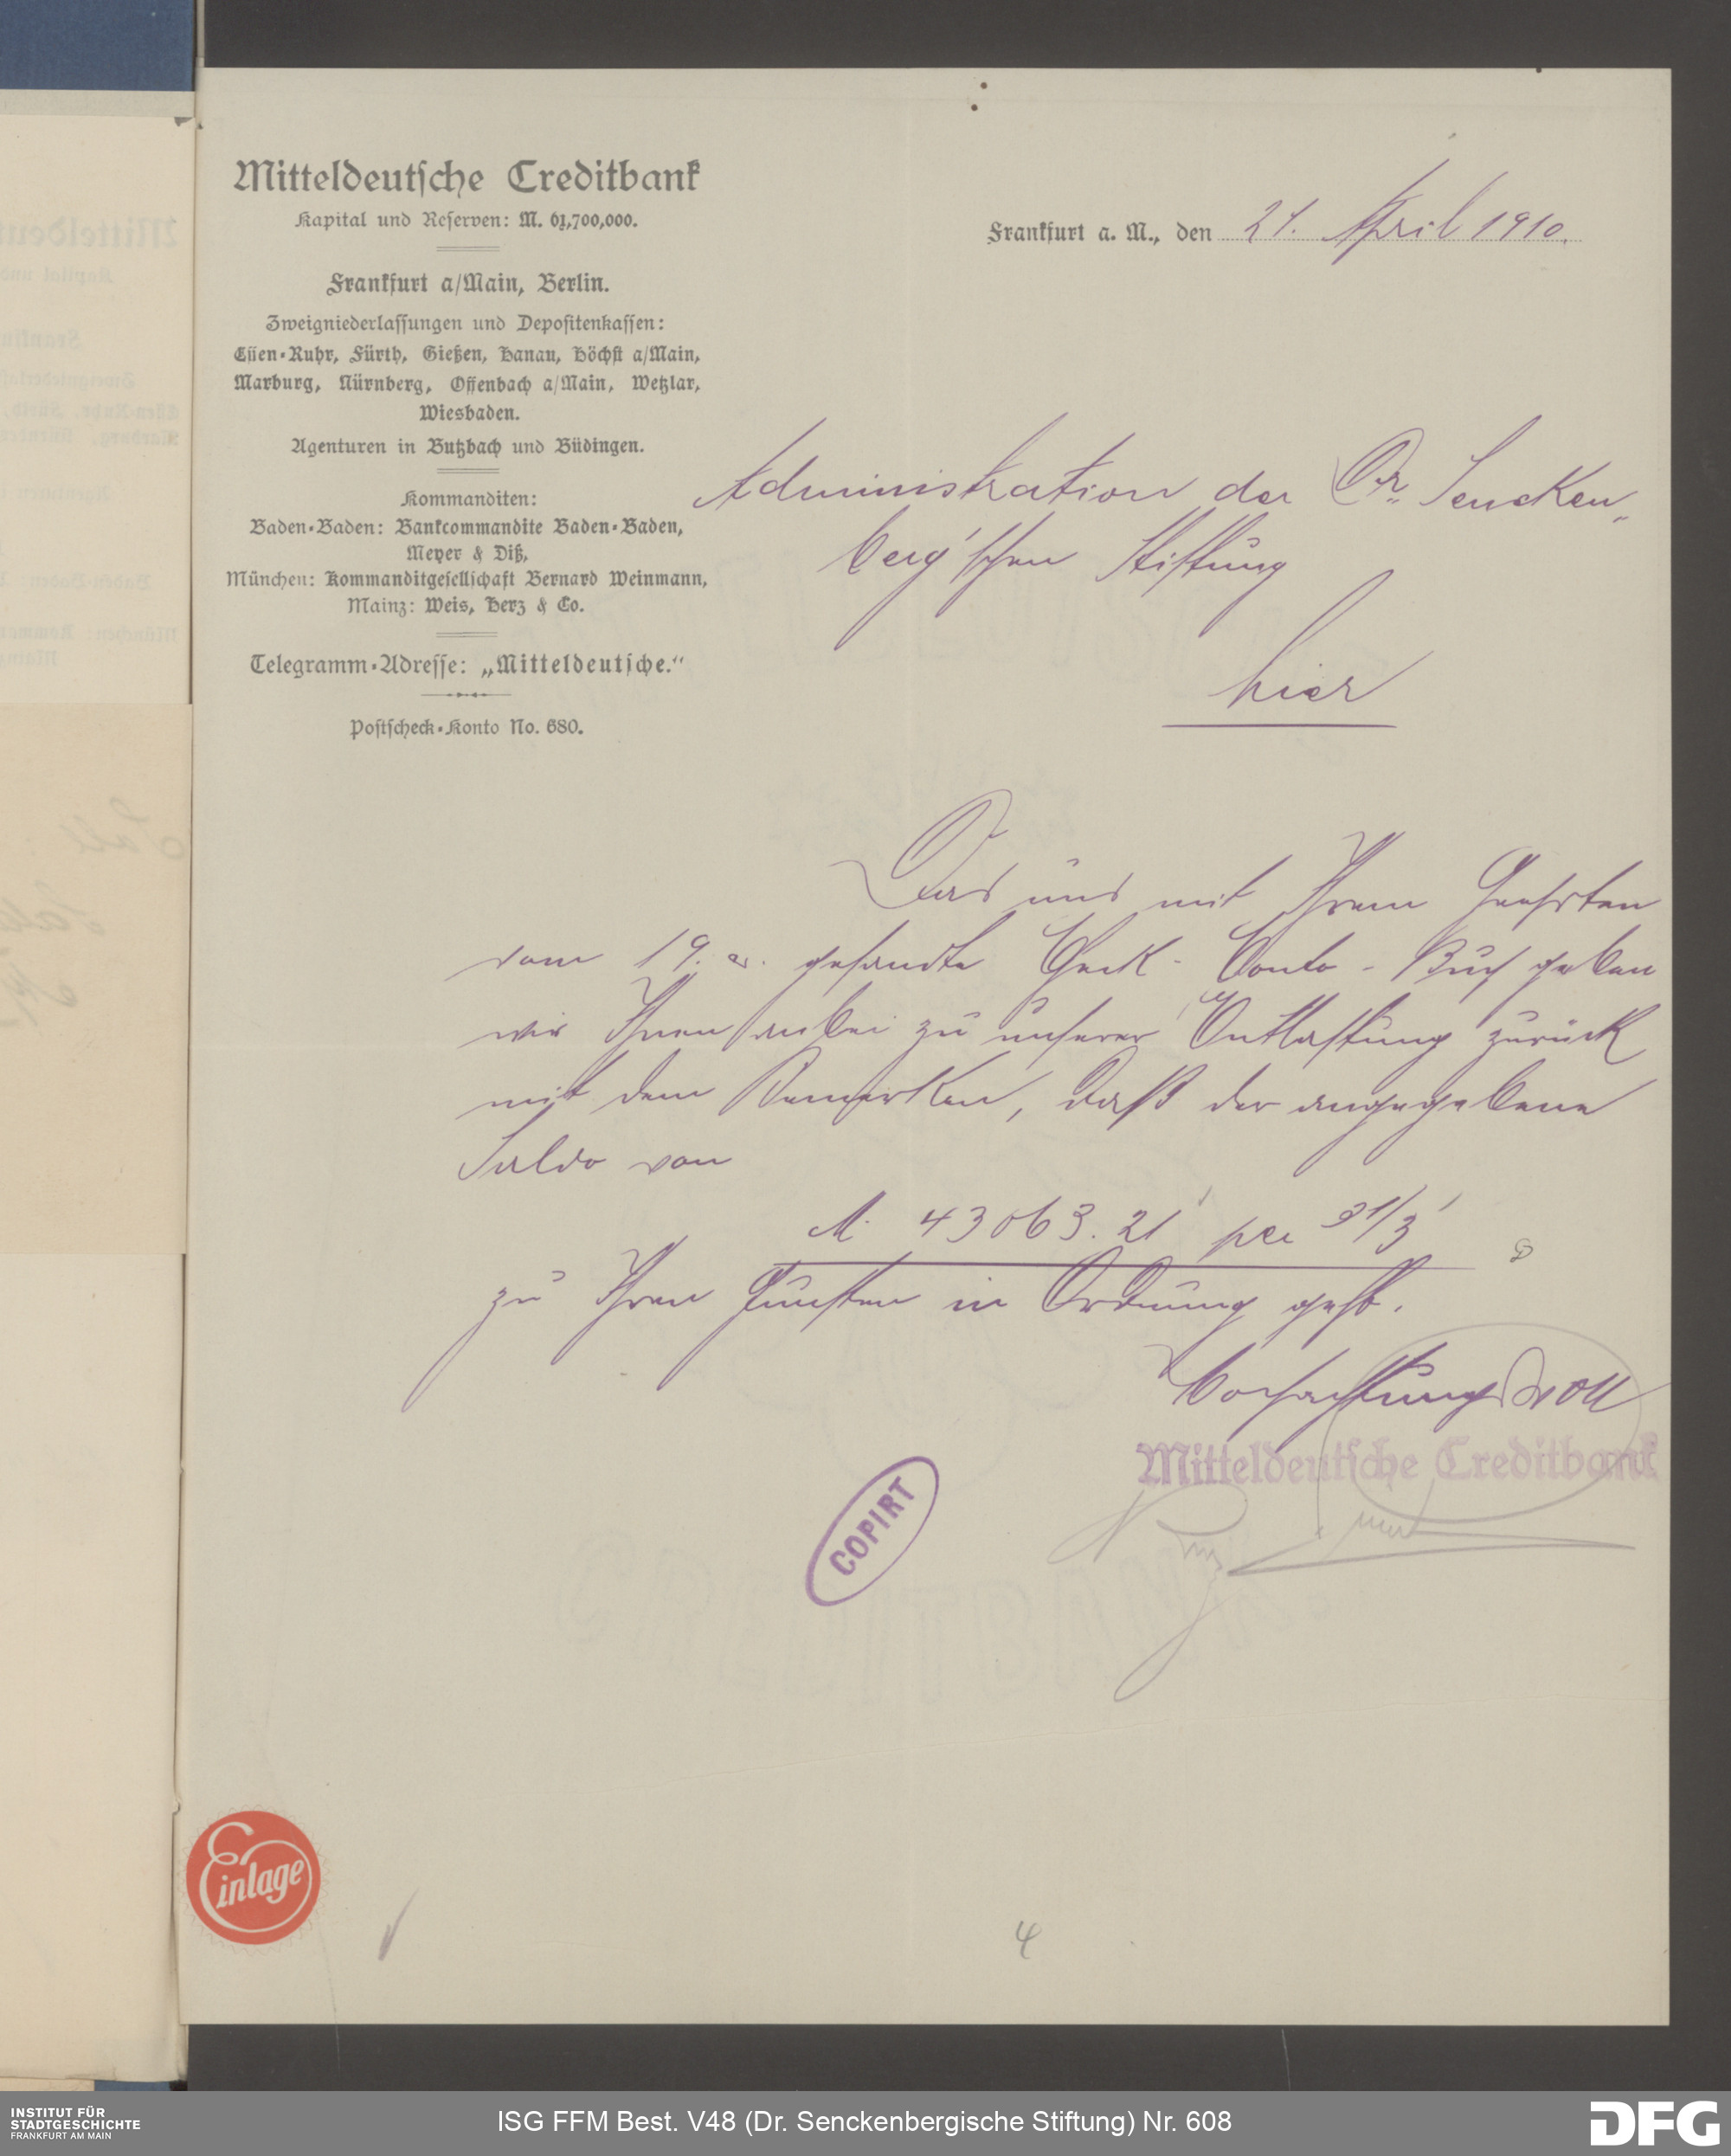 Mitteldeutsche Creditbank
Kapital und Reserven: M. 61,700,000.
Frankfurt a/Main, Berlin.
Zweigniederlassungen und Depositenkassen:
Essen-Ruhr, Fürth, Gießen, Hanau, Höchst a/Main,
Marburg, Nürnberg, Offenbach a/Main, Wetzlar,
Wiesbaden.
Agenturen in Butzbach und Büdingen.
Kommanditen:
Baden-Baden: Bankcommandite Baden-Baden,
Meyer & Diß,
München: Kommanditgesellschaft Bernard Weinmann,
Mainz: Weis, Herz & Co.
Telegramm-Adresse: „Mitteldeutsche."
Postscheck-Konto No. 680.
Frankfurt a. M., den 21. April 1910.
Administration der Dr. Sencken„
berg'schen Stiftung
hier
Das uns mit Ihrem Geehrten
vom 19. cr. gesandte Check-Conto-Buch geben
wir Ihnen anbei zu unserer Entlastung zurück
mit dem Bemerken, daß der angegebene
Saldo von
M. 43063.21 per 31/3
zu Ihren Gunsten in Ordnung geht.
Hochachtungsvoll
Mitteldeutsche Creditbank
COPIRT
Einlage
4
INSTITUT FÜR
STADTGESCHICHTE
FRANKFURT AM MAIN
ISG FFM Best. V48 (Dr. Senckenbergische Stiftung) Nr. 608
DFG